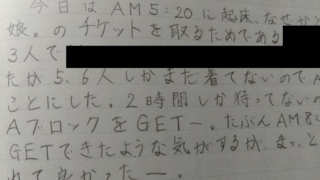 今日はAM5:20に起床、なぜか
娘。のチケットを取るためである
3人で
たが5.6人しかまだ着てないのでA
ことにした。2時間しか待ってないの
AブロックをGETー。たぶんAM8:
GETできたような気がするが、まっ、と
れて良かったー。